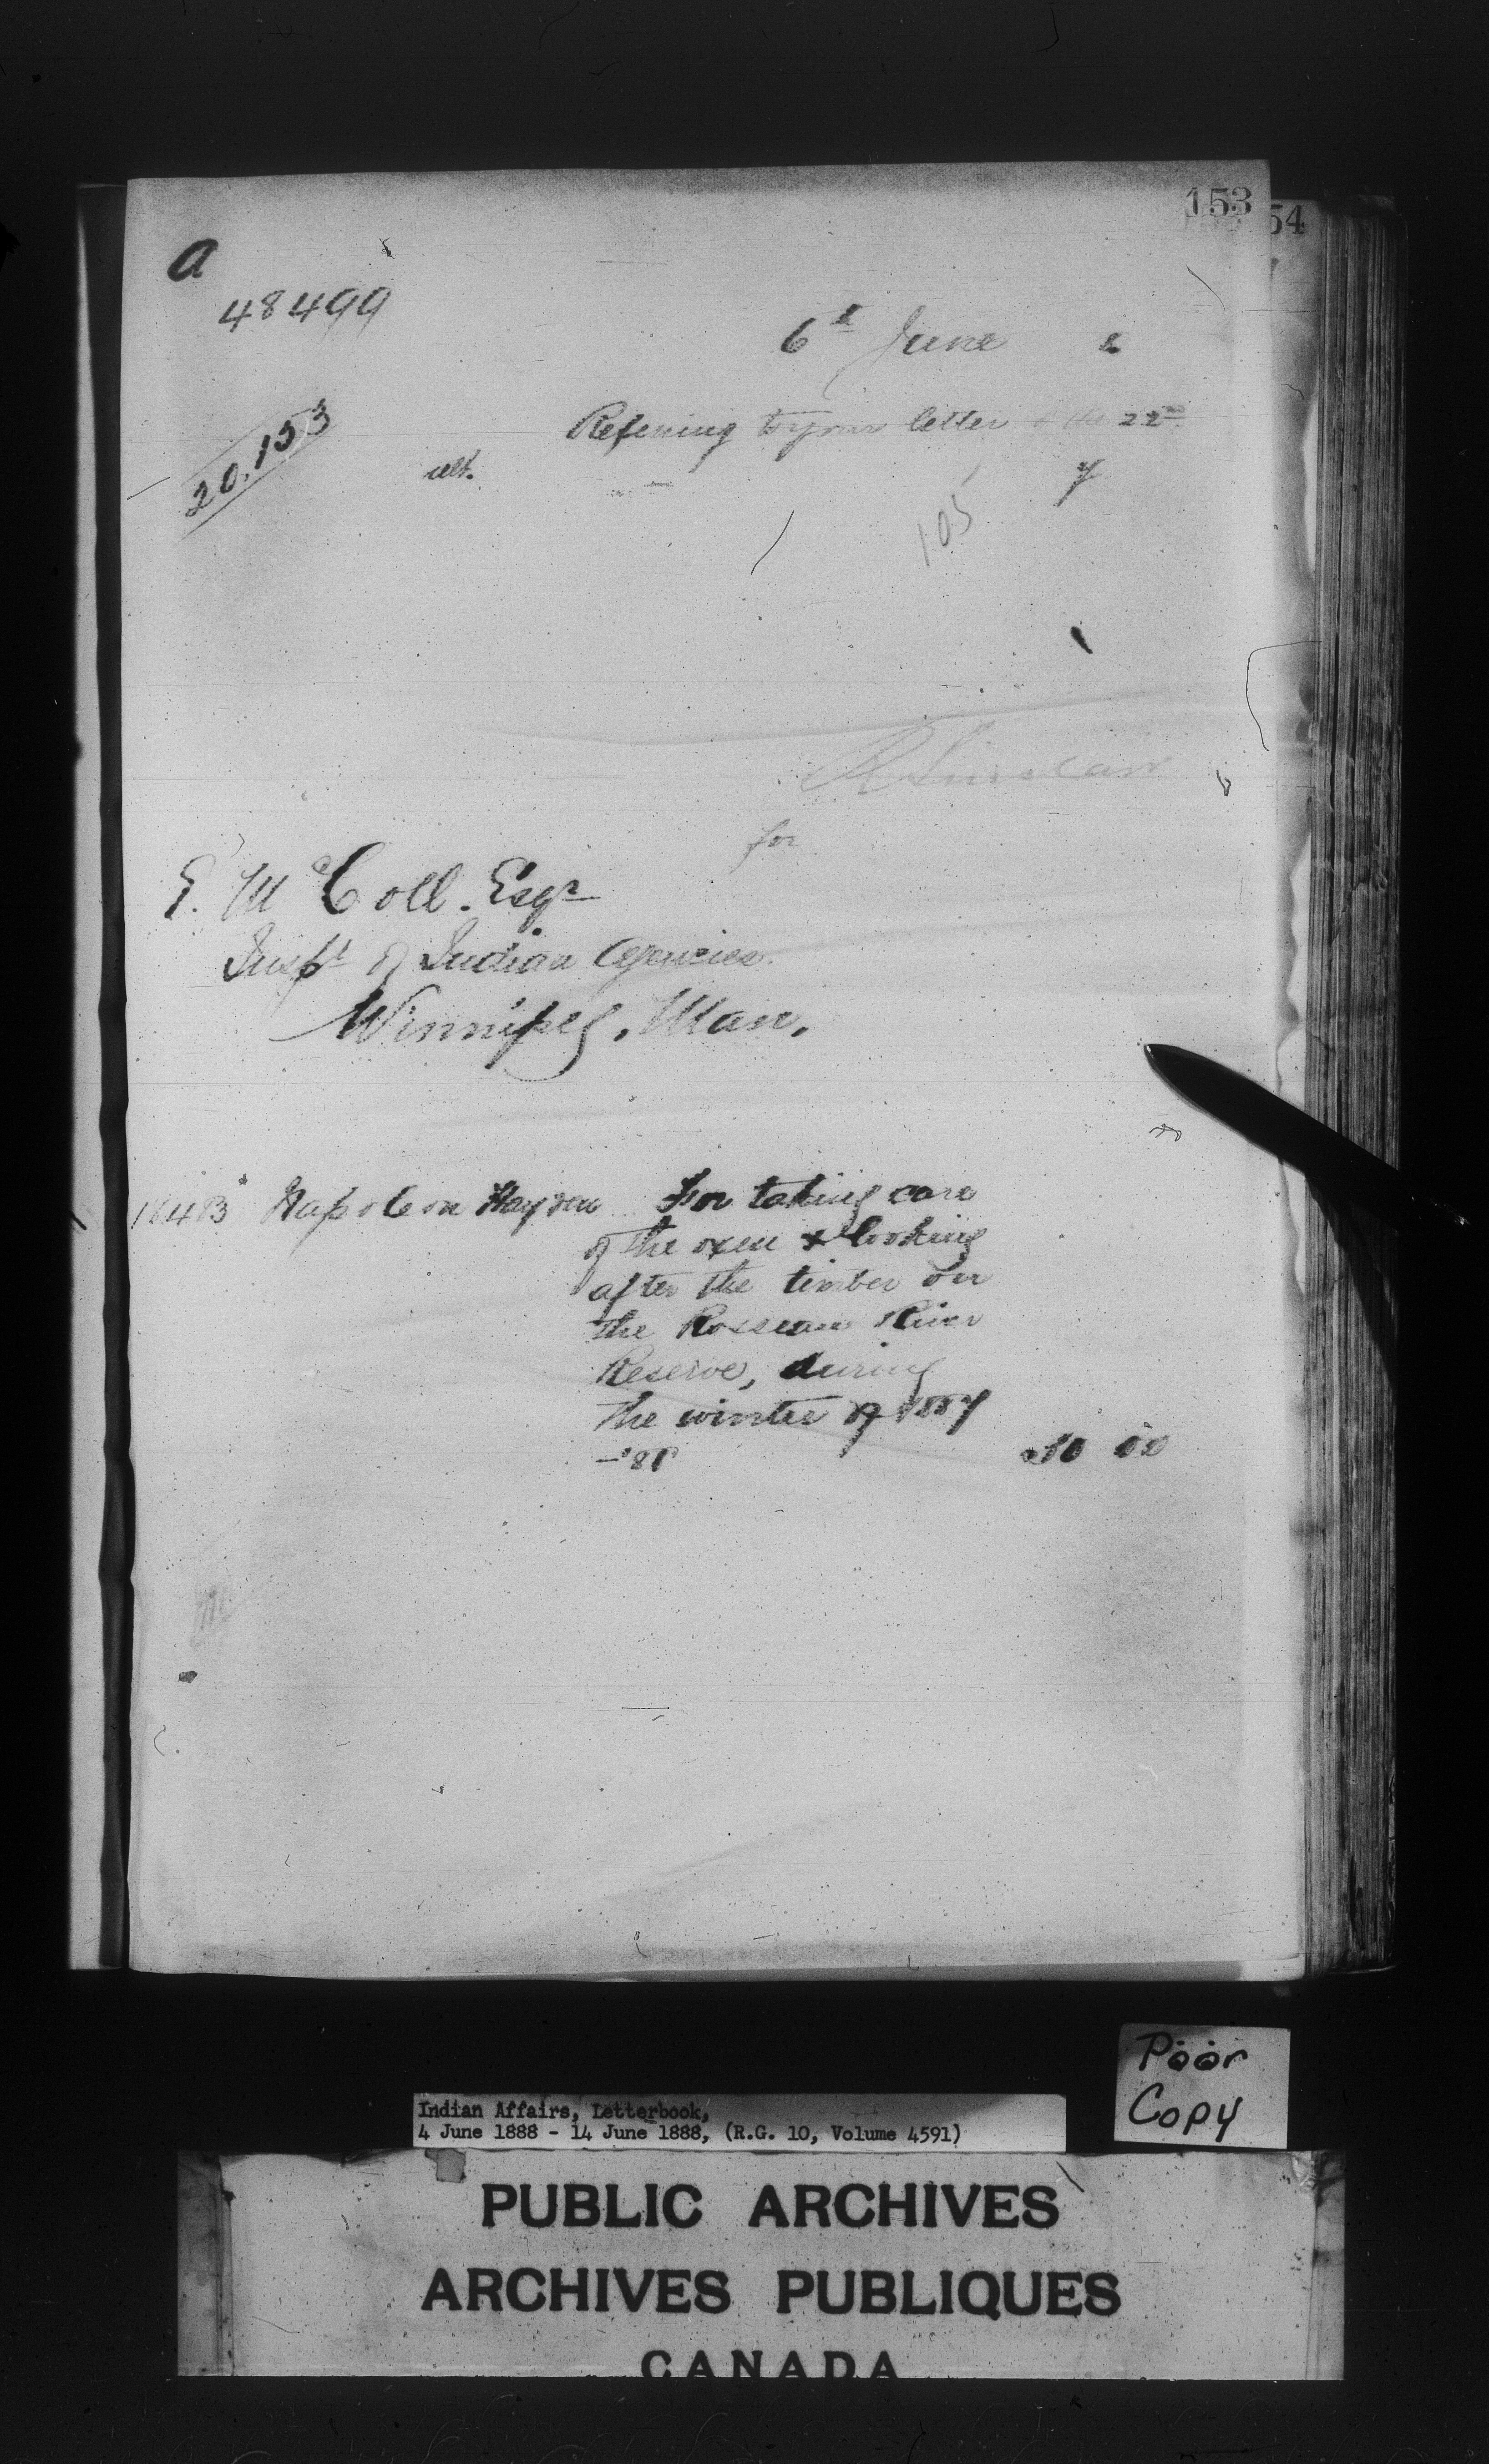 153
54
a
48499
6th June 8
20.153
Referring to your letter of the 22nd
ult. y
105
R Sinclair
for
E. McColl. Esqr
Inspr of Indian Agencies.
Winnipeg, Man.
Napoleon Hayden For taking care
of the oxen & looking
after the timber on
the Rosseau River
Reserve, during
the winter of 1887
-'88 50 00
Poor
Copy
Indian Affairs, Letterbook,
4 June 1888 - 14 June 1888, (R.G. 10, Volume 4591)
PUBLIC ARCHIVES
ARCHIVES PUBLIQUES
CANADA